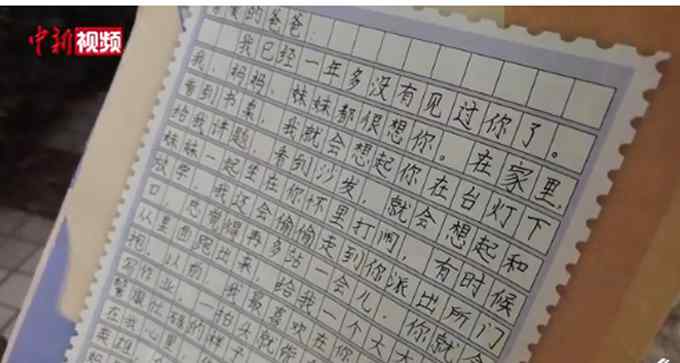 中新视频
的爸爸
我已经一年多没有见过你了。
我、妈妈、妹妹都很想你。在家里,
看到书桌,我就会想起你在台灯下
给我讲题,看到沙发,就会想起和
妹妹一起坐在你怀里打闹,有时候
放学,我还会偷偷走到你派出所门
口,总觉得再多站一会儿,你就会
从里面跑出来,给我一个大大
抱,以前,我最喜欢在你
写作业,一抬头就能
警服忙碌的样子
在我心里,你
英雄